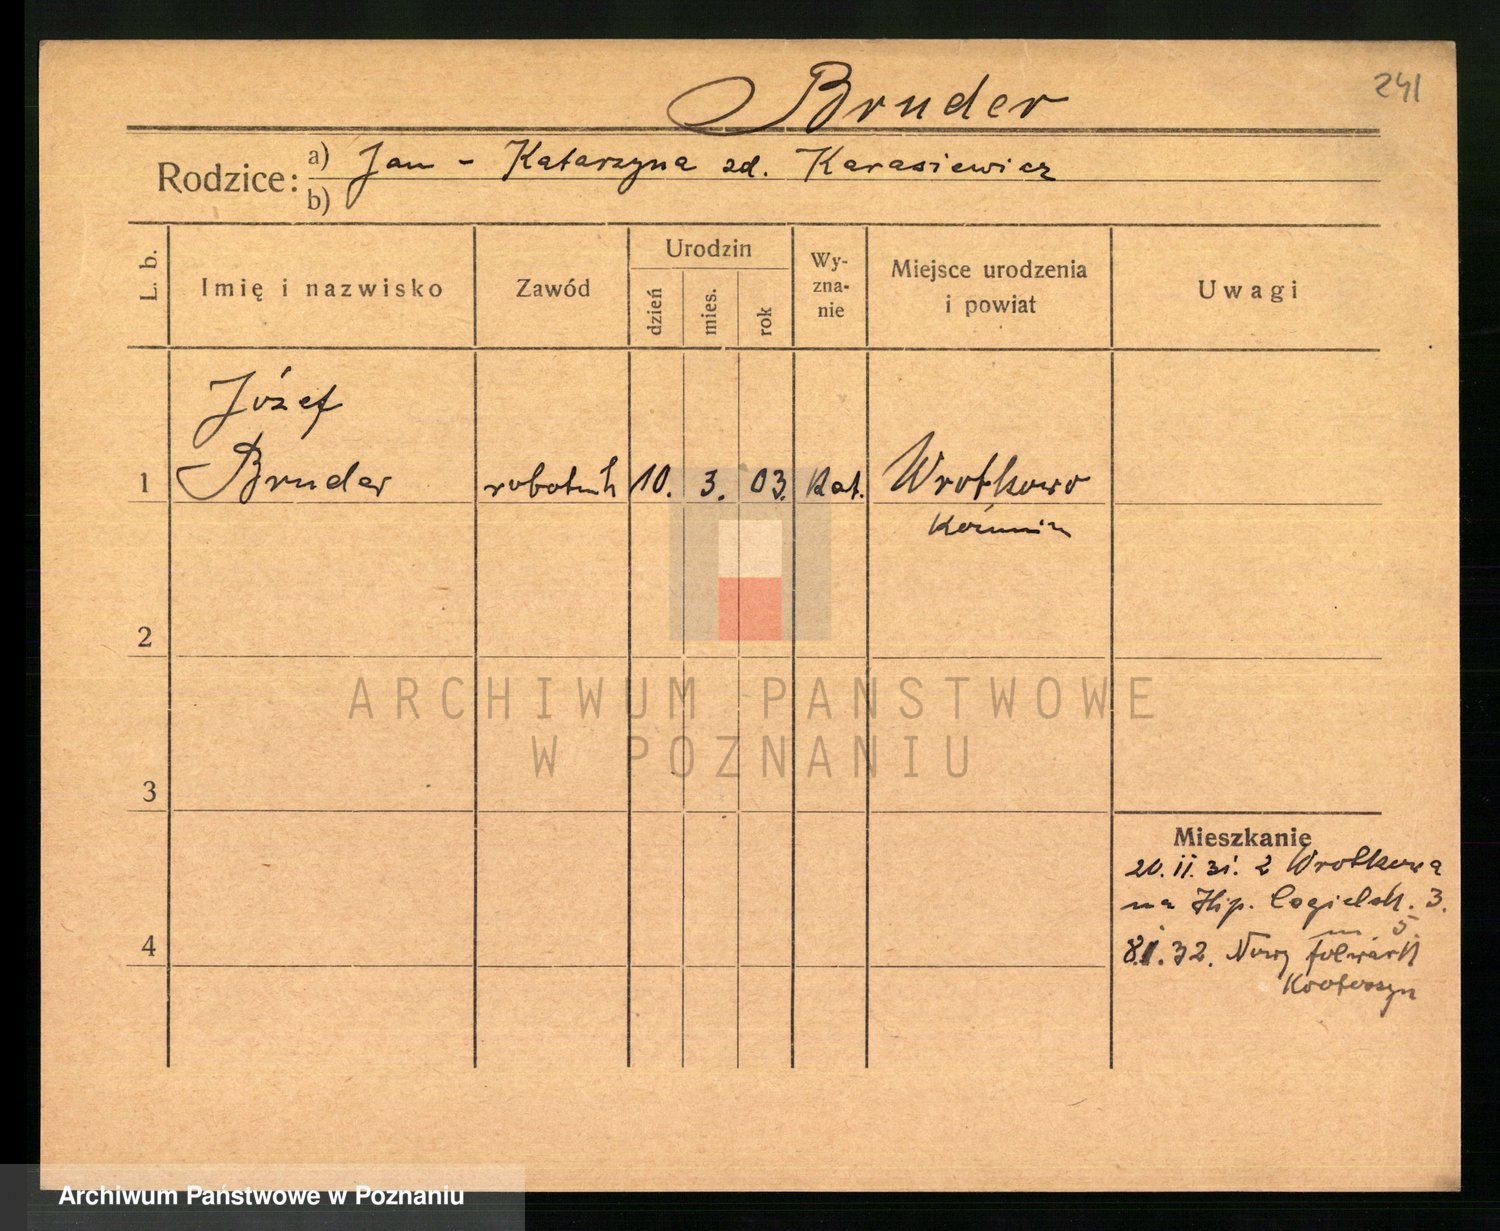 241
Bruder
Rodzice: a) Jan - Katarzyna zd. Karasiewicz
b)
L. b.
Imię i nazwisko
Zawód
Urodzin
dzień
mies.
rok
Wy-
zna-
nie
Miejsce urodzenia
i powiat
Uwagi
Józef
1 Bruder robotnik 10. 3. 03. Kat. Wrotkowo
Koźmin
2
3
4
ARCHIWUM PAŃSTWOWE
W POZNANIU
Mieszkanie
20. II. 31. z Wrotkowa
na Hip. Cegielsk. 3.
m. 5.
8.I.32. Nowy folwark
Krotoszyn
Archiwum Państwowe w Poznaniu